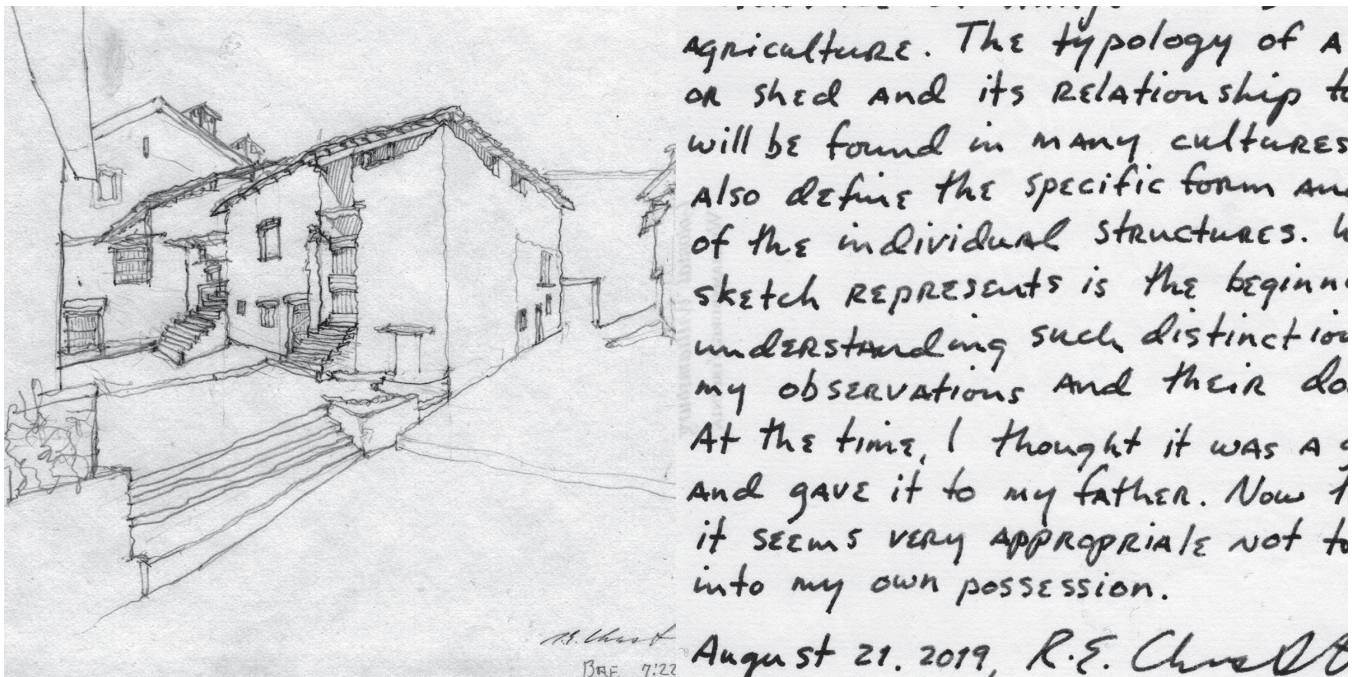 agriculture. The typology of A
or shed and its relationship to
will be found in many cultures
Also define the specific form an
of the individual structures.
sketch represents is the beginn
understanding such distinction
my observations and their do
At the time, I thought it was a g
and gave it to my father. Now t
it seems very appropriate not to
into my own possession.
August 21. 2019, R.E.
7:22